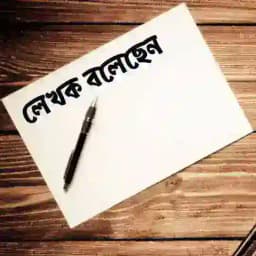 লেখক বলেছেন